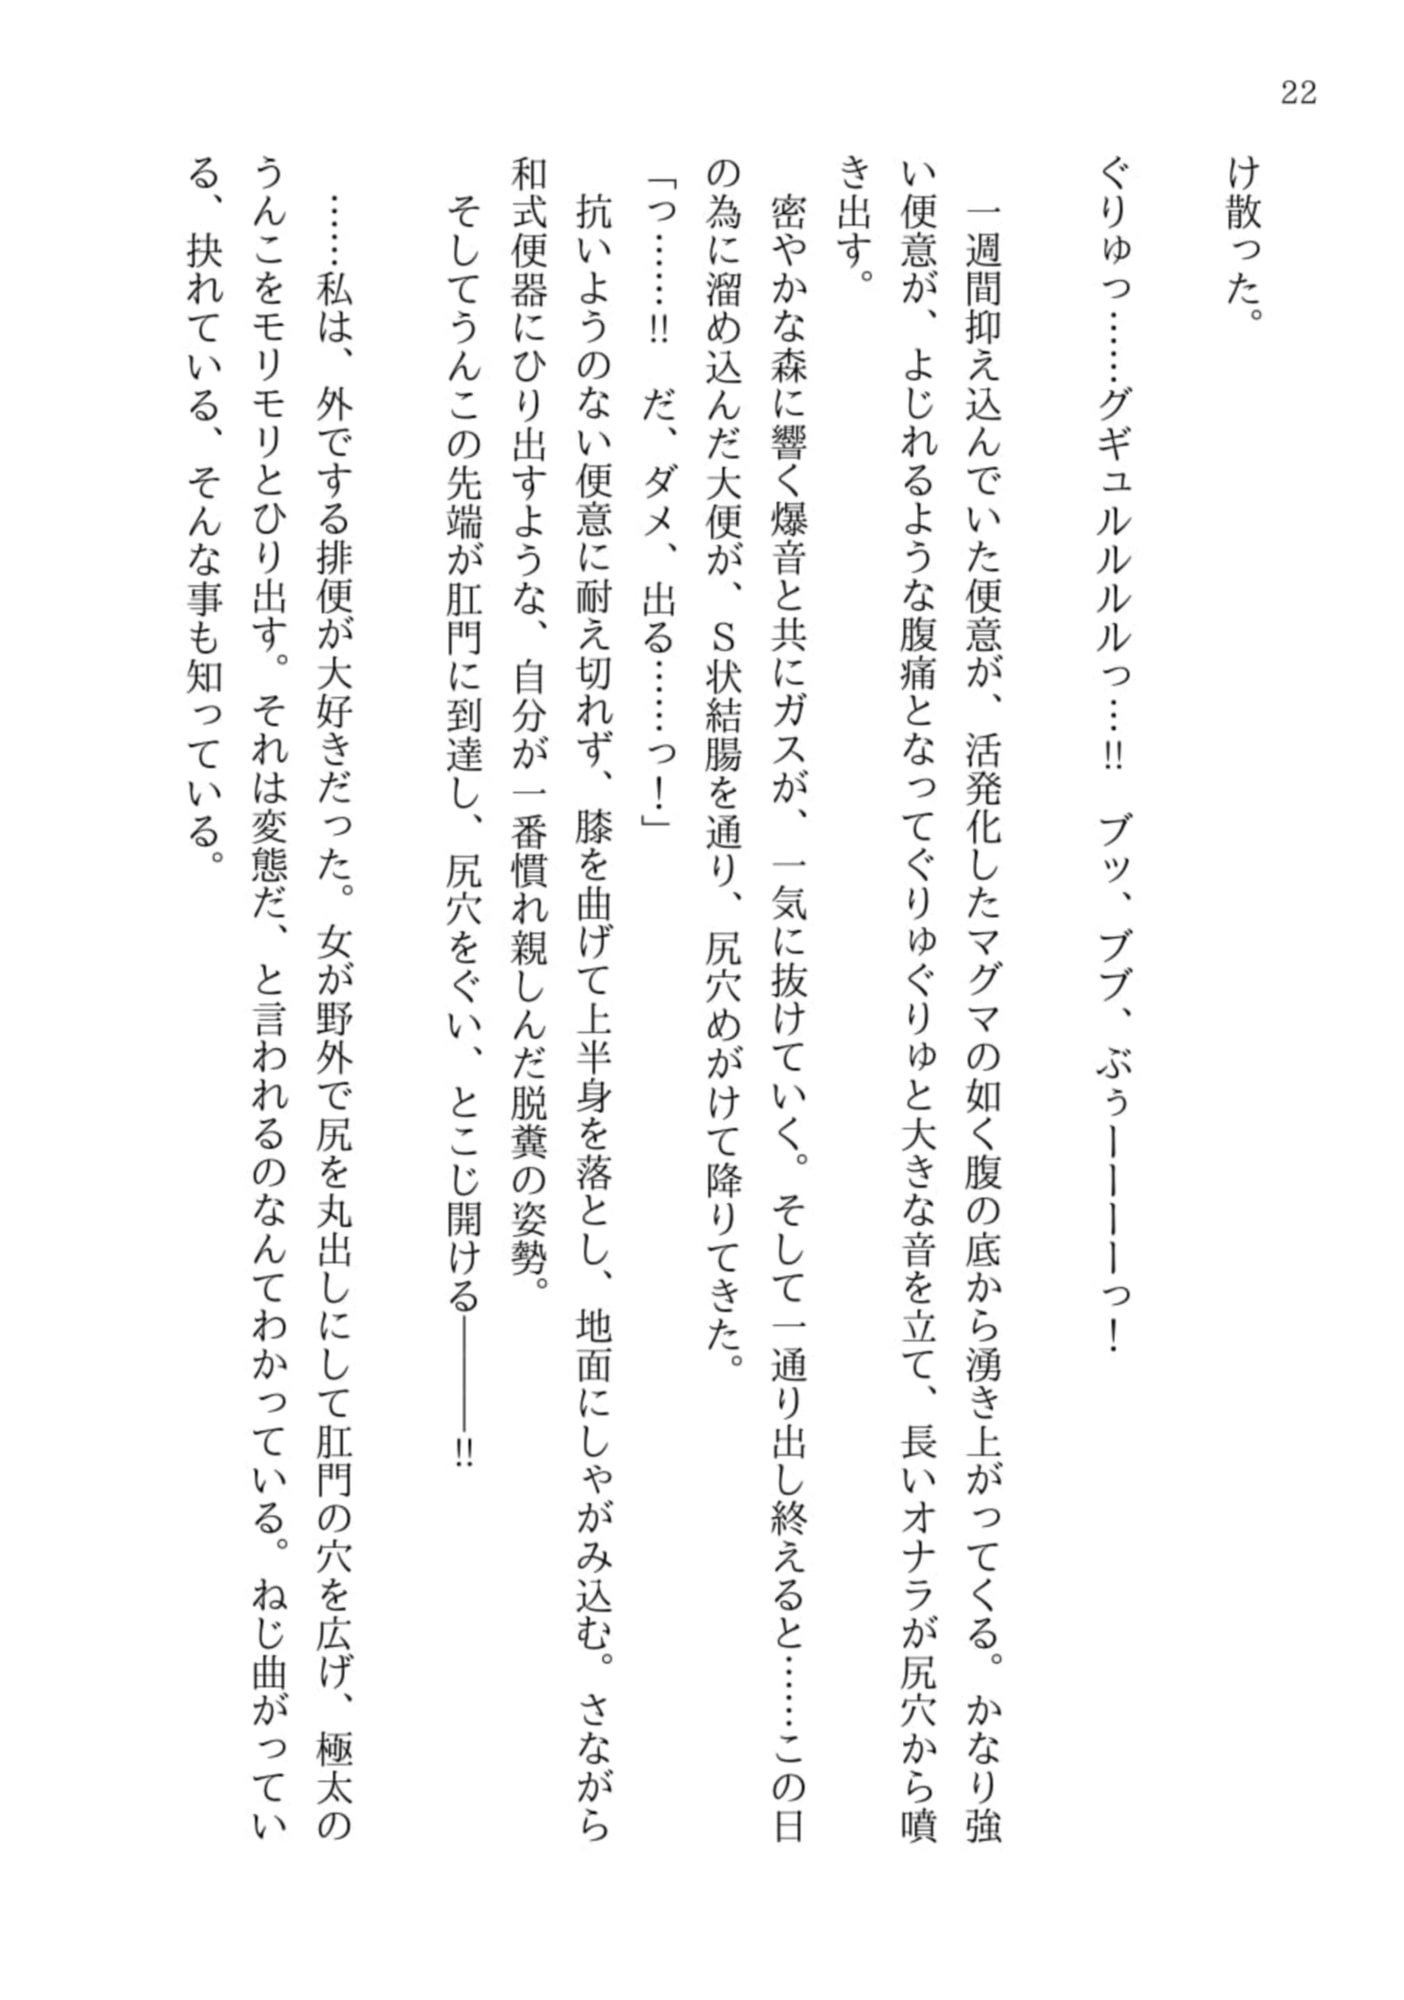 22
け散った。
ぐりゅっ……グギュルルルルっ…!!　ブッ、ブブ、ぶぅーーーーっ！
　一週間抑え込んでいた便意が、活発化したマグマの如く腹の底から湧き上がってくる。かなり強
い便意が、よじれるような腹痛となってぐりゅぐりゅと大きな音を立て、長いオナラが尻穴から噴
き出す。
　密やかな森に響く爆音と共にガスが、一気に抜けていく。そして一通り出し終えると……この日
の為に溜め込んだ大便が、Ｓ状結腸を通り、尻穴めがけて降りてきた。
「っ……!!　だ、ダメ、出る……っ！」
　抗いようのない便意に耐え切れず、膝を曲げて上半身を落とし、地面にしゃがみ込む。さながら
和式便器にひり出すような、自分が一番慣れ親しんだ脱糞の姿勢。
　そしてうんこの先端が肛門に到達し、尻穴をぐい、とこじ開ける―――!!
　……私は、外でする排便が大好きだった。女が野外で尻を丸出しにして肛門の穴を広げ、極太の
うんこをモリモリとひり出す。それは変態だ、と言われるのなんてわかっている。ねじ曲がってい
る、抉れている、そんな事も知っている。